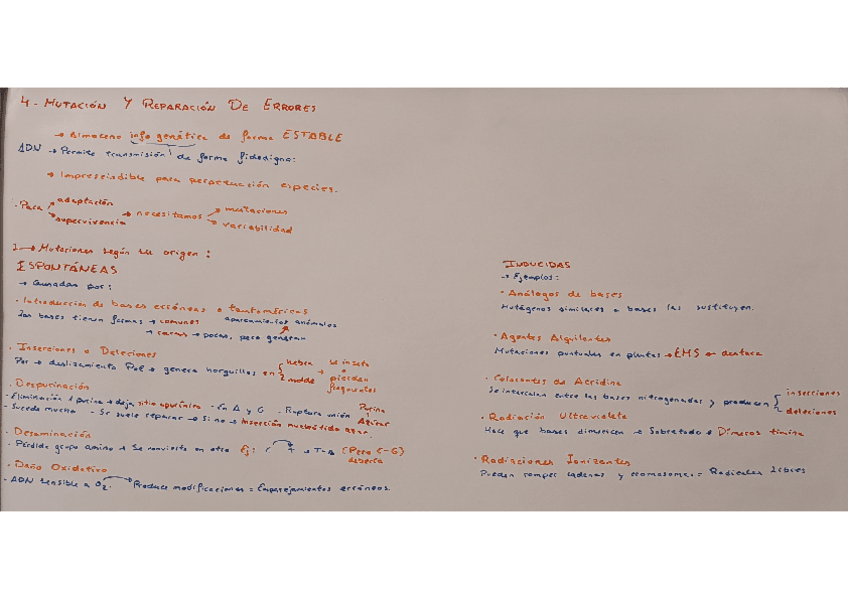 4. MUTACIÓN Y REPARACIÓN DE ERRORES
→ Almacena info genética de forma ESTABLE
ADN → Permite transmisión de forma fidedigna:
→ Imprescindible para perpetuación especies.
· Para → adaptación → supervivencia → necesitamos → mutaciones → variabilidad
1 → Mutaciones según su origen:
ESPONTÁNEAS
→ Causadas por:
· Introducción de bases erróneas o tautoméricas
Las bases tienen formas → comunes
→ raras → pocas, pero generan apareamientos anómalos
· Inserciones o Deleciones
Por → deslizamiento Pol → genera horquillas en { hebra molde → se inserta o pierden
· Despurinación
- Eliminación 1 purina → deja sitio apurínico - En A y G · Ruptura unión Purina Azúcar
- Sucede mucho - Se suele reparar → Si no → Inserción nucleótido azar.
· Desaminación
- Pérdida grupo amino → Se convierte en otro Ej: C → T → T-A (Pero C-G) debería
· Daño Oxidativo
- ADN sensible a O2. Produce modificaciones = Emparejamientos erróneos.
INDUCIDAS
→ Ejemplos:
· Análogos de bases
Mutágenos similares a bases las sustituyen.
· Agentes Alquilantes
Mutaciones puntuales en plantas → EMS → destaca
· Colorantes de Acridina
Se intercalan entre las bases nitrogenadas y producen { inserciones deleciones
· Radiación Ultravioleta
Hace que bases dimericen → Sobretodo → Dímeros timina
· Radiaciones Ionizantes
Pueden romper cadenas y cromosomas = Radicales Libres